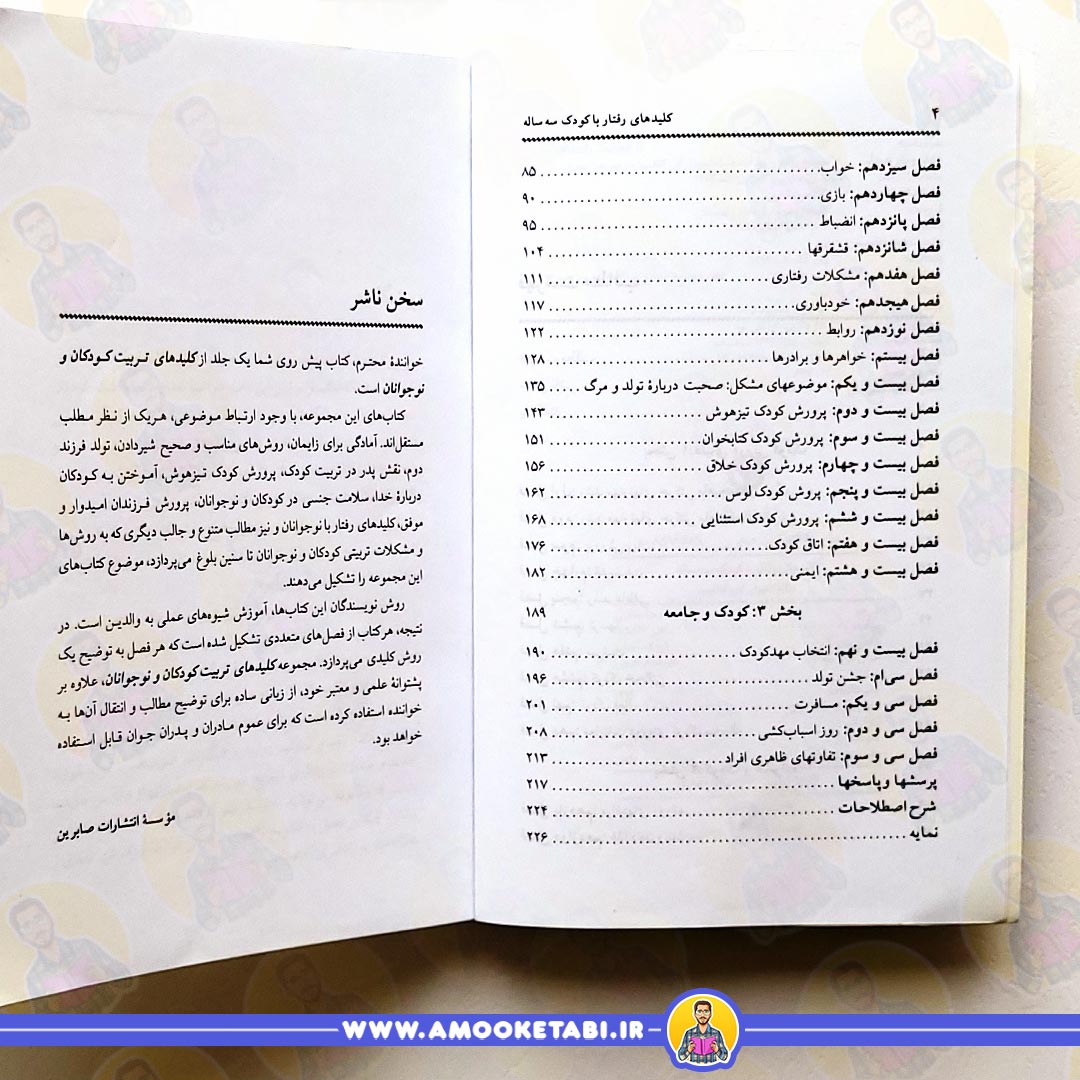 ۴
کلیدهای رفتار با کودک سه ساله
فصل سیزدهم: خواب ۸۵
فصل چهاردهم: بازی ۹۰
فصل پانزدهم: انضباط ۹۵
فصل شانزدهم: قشقرقها ۱۰۴
فصل هفدهم: مشکلات رفتاری ۱۱۱
فصل هیجدهم: خودباوری ۱۱۷
فصل نوزدهم: روابط ۱۲۲
فصل بیستم: خواهرها و برادرها ۱۲۸
فصل بیست و یکم: موضوعهای مشکل: صحبت دربارهٔ تولد و مرگ ۱۳۵
فصل بیست و دوم: پرورش کودک تیزهوش ۱۴۳
فصل بیست و سوم: پرورش کودک کتابخوان ۱۵۱
فصل بیست و چهارم: پرورش کودک خلاق ۱۵۶
فصل بیست و پنجم: پروش کودک لوس ۱۶۲
فصل بیست و ششم: پرورش کودک استثنایی ۱۶۸
فصل بیست و هفتم: اتاق کودک ۱۷۶
فصل بیست و هشتم: ایمنی ۱۸۲
بخش ۳: کودک و جامعه ۱۸۹
فصل بیست و نهم: انتخاب مهدکودک ۱۹۰
فصل سی‌ام: جشن تولد ۱۹۶
فصل سی و یکم: مسافرت ۲۰۱
فصل سی و دوم: روز اسباب‌کشی ۲۰۸
فصل سی و سوم: تفاوتهای ظاهری افراد ۲۱۳
پرسشها و پاسخها ۲۱۷
شرح اصطلاحات ۲۲۴
نمایه ۲۲۶
سخن ناشر
خوانندهٔ محترم، کتاب پیش روی شما یک جلد از کلیدهای تربیت کودکان و
نوجوانان است.
کتاب‌های این مجموعه، با وجود ارتباط موضوعی، هریک از نظر مطلب
مستقل‌اند. آمادگی برای زایمان، روش‌های مناسب و صحیح شیردادن، تولد فرزند
دوم، نقش پدر در تربیت کودک، پرورش کودک تیزهوش، آموختن به کودکان
دربارهٔ خدا، سلامت جنسی در کودکان و نوجوانان، پرورش فرزندان امیدوار و
موفق، کلیدهای رفتار با نوجوانان و نیز مطالب متنوع و جالب دیگری که به روش‌ها
و مشکلات تربیتی کودکان و نوجوانان تا سنین بلوغ می‌پردازد، موضوع کتاب‌های
این مجموعه را تشکیل می‌دهند.
روش نویسندگان این کتاب‌ها، آموزش شیوه‌های عملی به والدین است. در
نتیجه، هر کتاب از فصل‌های متعددی تشکیل شده است که هر فصل به توضیح یک
روش کلیدی می‌پردازد. مجموعه کلیدهای تربیت کودکان و نوجوانان، علاوه بر
پشتوانهٔ علمی و معتبر خود، از زبانی ساده برای توضیح مطالب و انتقال آن‌ها به
خواننده استفاده کرده است که برای عموم مادران و پدران جوان قابل استفاده
خواهد بود.
مؤسسهٔ انتشارات صابرین
WWW.AMOOKETABI.IR